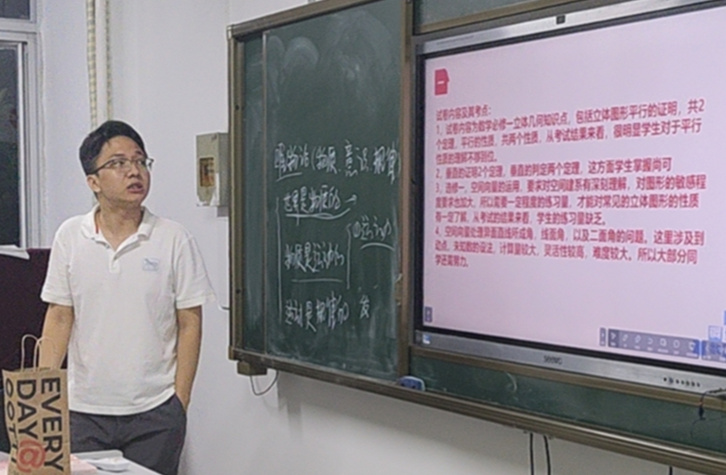 试卷内容及其考点：
1、试卷内容为数学必修一立体几何知识点，包括立体图形平行的证明，共2
个定理，平行的性质，共两个性质，从考试结果来看，很明显学生对于平行
性质的理解不够到位。
2、垂直的证明2个定理，垂直的判定两个定理，这方面学生掌握尚可
3、选修一，空间向量的运用，要求对空间建系有深刻理解，对图形的敏感程
度要求也加大，所以需要一定程度的练习量，才能对常见的立体图形的性质
有一定了解，从考试的结果来看，学生的练习量缺乏。
4、空间向量处理异面直线所成角，线面角，以及二面角的问题，这里涉及到
动点，未知数的设法，计算量较大，灵活性较高，难度较大。所以大部分同
学还需努力。
唯物论（物质 意识 规律）
世界是物质的
物质是运动的
①运动的
运动是规律的
EVERY
DAY@
OOT